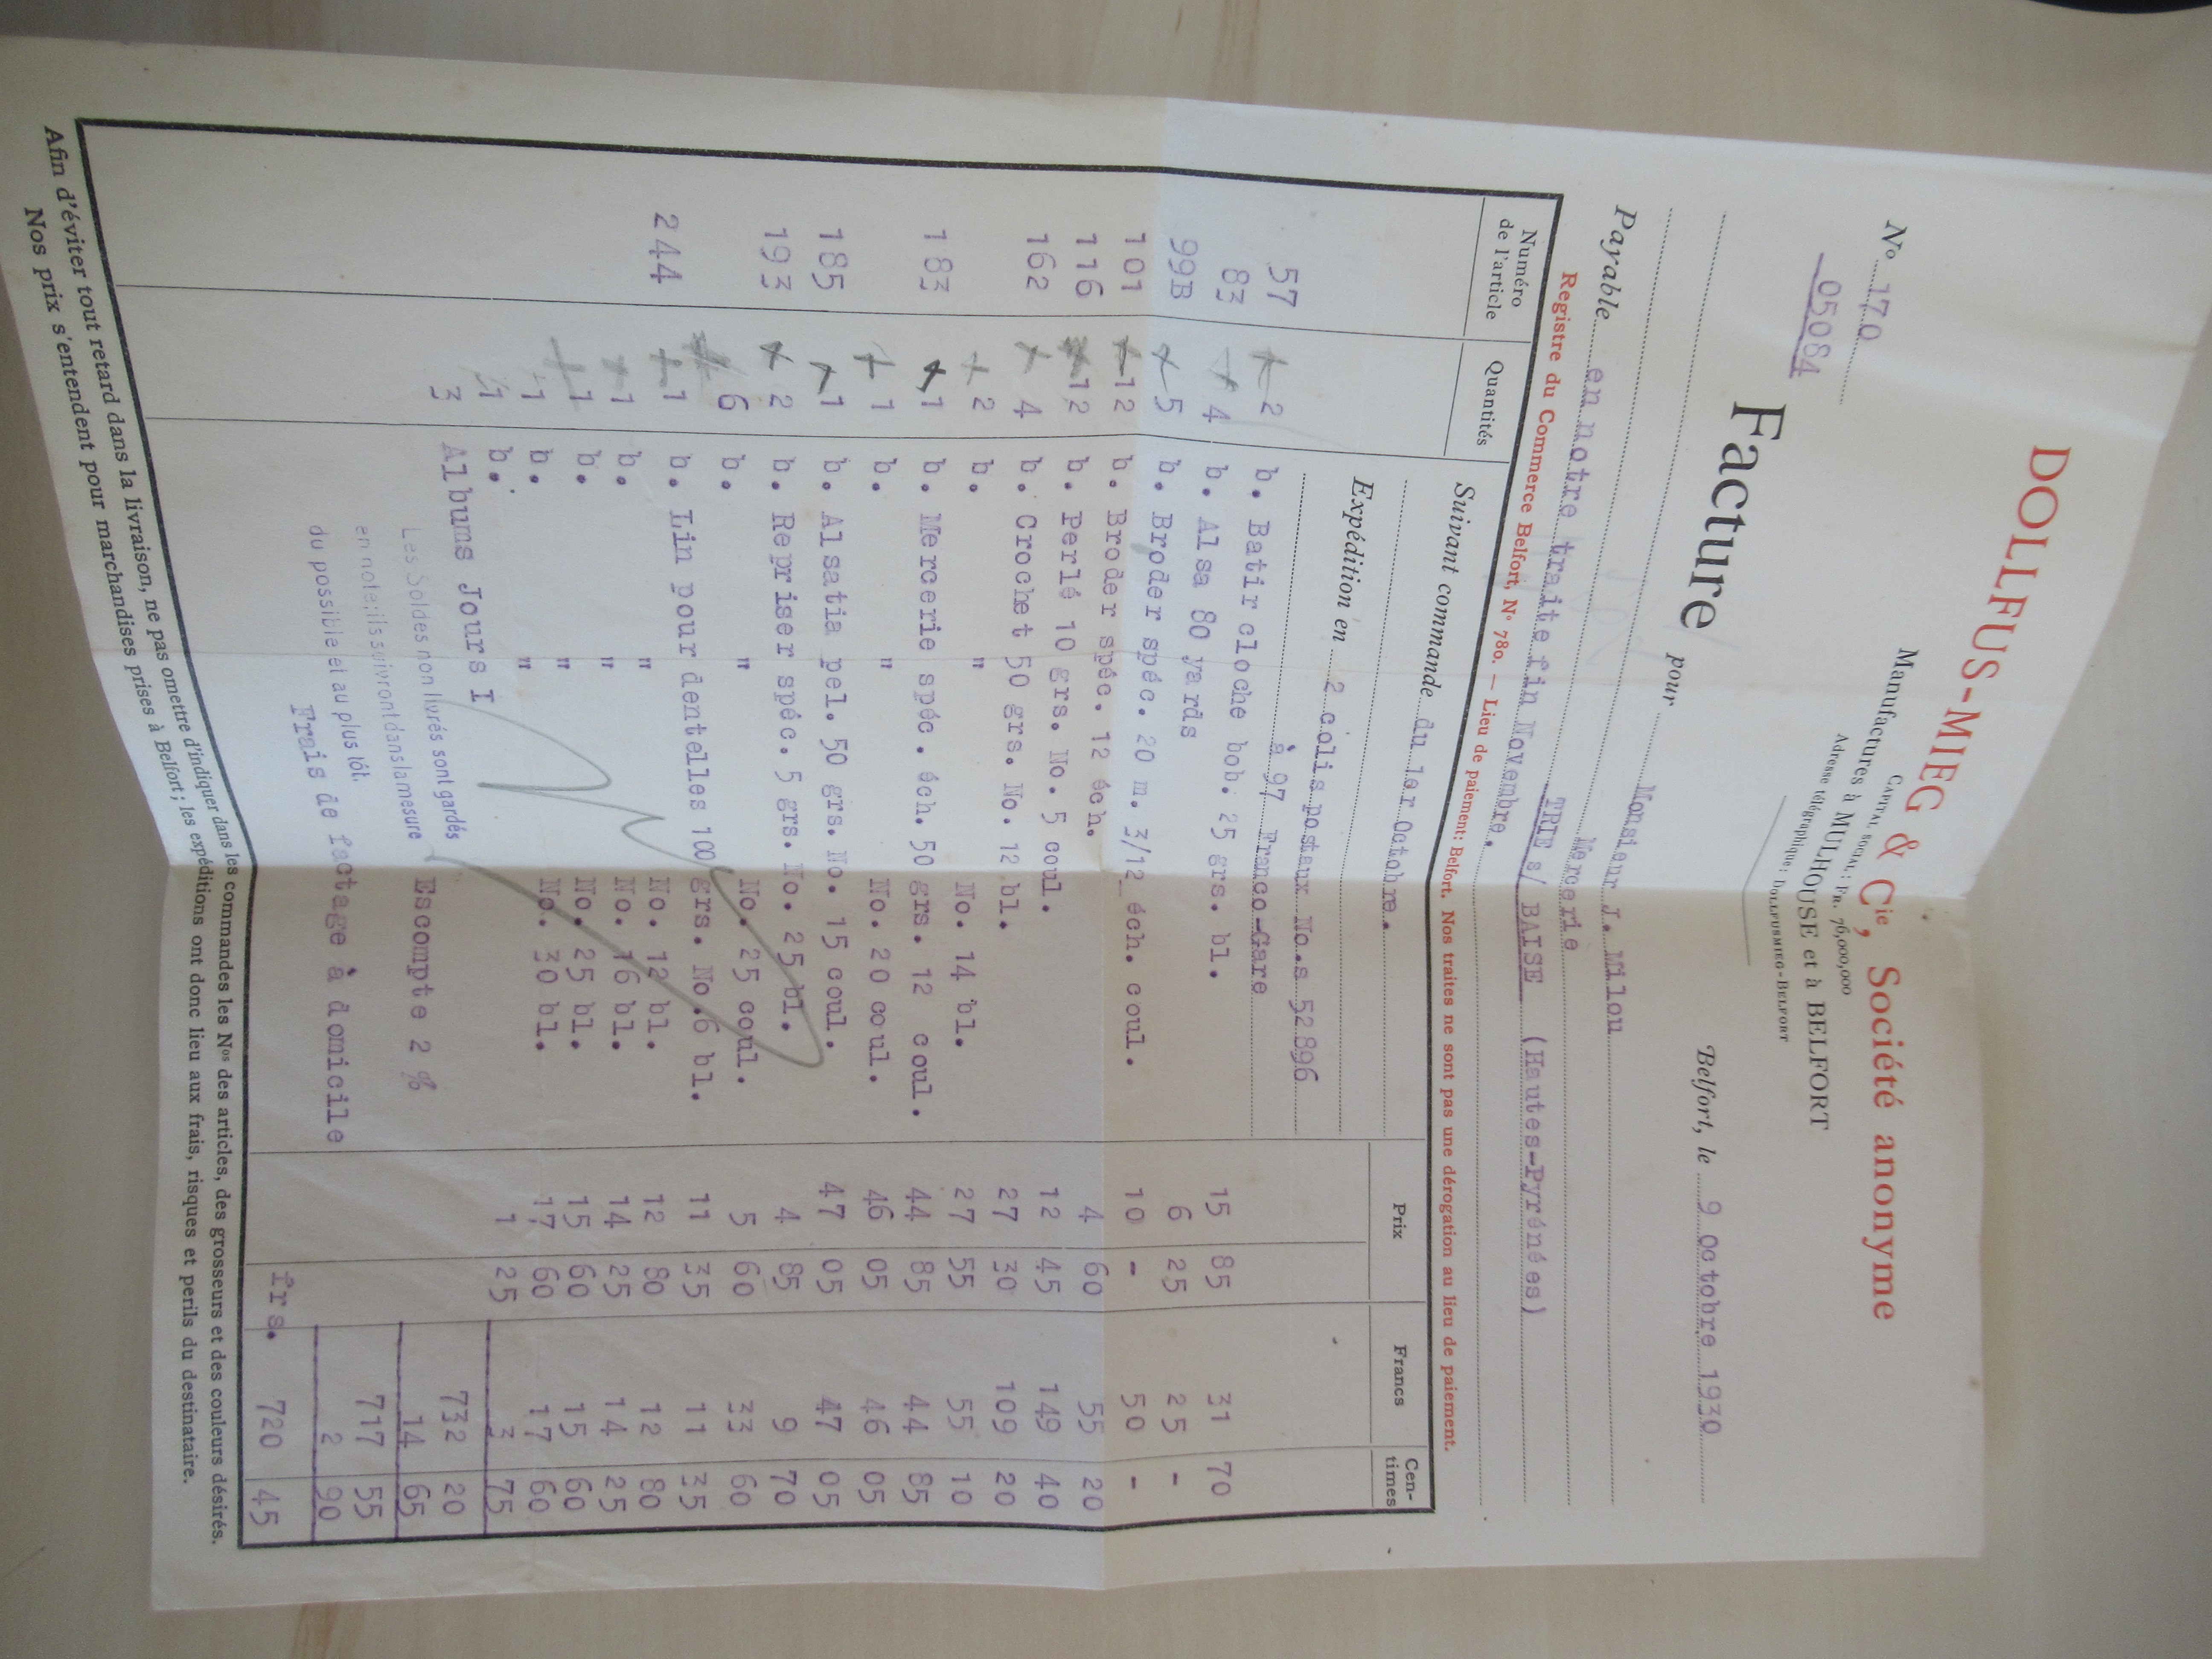 DOLLFUS-MIEG & Cie, Société anonyme
CAPITAL SOCIAL: FR. 76,000,000
Manufactures à MULHOUSE et à BELFORT
Adresse télégraphique: DOLLFUSMIEG-BELFORT
No 170
05084
Belfort, le 9 Octobre 1930
Facture pour Monsieur J. Milou
Mercerie
TRIE s/ BAISE (Hautes-Pyrénées)
Payable en notre traite fin Novembre.
Registre du Commerce Belfort, N° 780. — Lieu de paiement: Belfort. Nos traites ne sont pas une dérogation au lieu de paiement.
Numéro de l'article Quantités Suivant commande du 1er Octobre. Prix Francs Cen-times
Expédition en 2 colis postaux No.s 52896
à 97 Franco-Gare
57 2 b. Batir cloche bob. 25 grs. bl. 15 85 31 70
83 4 b. Alsa 80 yards 6 25 25 -
99B 5 b. Broder spéc. 20 m. 3/12 éch. coul. 10 - 50 -
101 12 b. Broder spéc. 12 éch. 4 60 55 20
116 12 b. Perlé 10 grs. No. 5 coul. 12 45 149 40
162 4 b. Crochet 50 grs. No. 12 bl. 27 30 109 20
2 b. " No. 14 bl. 27 55 55 10
183 1 b. Mercerie spéc. éch. 50 grs. 12 coul. 44 85 44 85
1 b. " No. 20 coul. 46 05 46 05
185 1 b. Alsatia pel. 50 grs. No. 15 coul. 47 05 47 05
193 2 b. Repriser spéc. 5 grs. No. 25 bl. 4 85 9 70
6 b. " No. 25 coul. 5 60 33 60
244 1 b. Lin pour dentelles 100 grs. No.6 bl. 11 35 11 35
1 b. " No. 12 bl. 12 80 12 80
1 b. " No. 16 bl. 14 25 14 25
1 b. " No. 25 bl. 15 60 15 60
1 b. " No. 30 bl. 17 60 17 60
3 Albums Jours I 1 25 3 75
732 20
Les Soldes non livrés sont gardés
en note; ils suivront dans la mesure
du possible et au plus tôt.
Escompte 2 % 14 65
717 55
Frais de factage à domicile 2 90
frs. 720 45
Afin d'éviter tout retard dans la livraison, ne pas omettre d'indiquer dans les commandes les Nos des articles, des grosseurs et des couleurs désirés.
Nos prix s'entendent pour marchandises prises à Belfort; les expéditions ont donc lieu aux frais, risques et perils du destinataire.